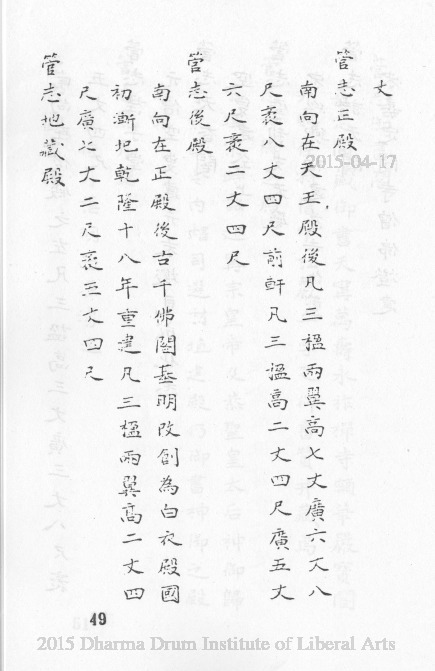 丈
管志正殿
南向在天王殿後凡三楹兩翼高七丈廣六丈八
尺袤八丈四尺前軒凡三楹高二丈四尺廣五丈
六尺袤二丈四尺
管志後殿
南向在正殿後古千佛閣基明改創為白衣殿國
初漸圯乾隆十八年重建凡三楹兩翼高二丈四
尺廣七丈二尺袤三丈四尺
管志地藏殿
49
2015-04-17
2015 Dharma Drum Institute of Liberal Arts